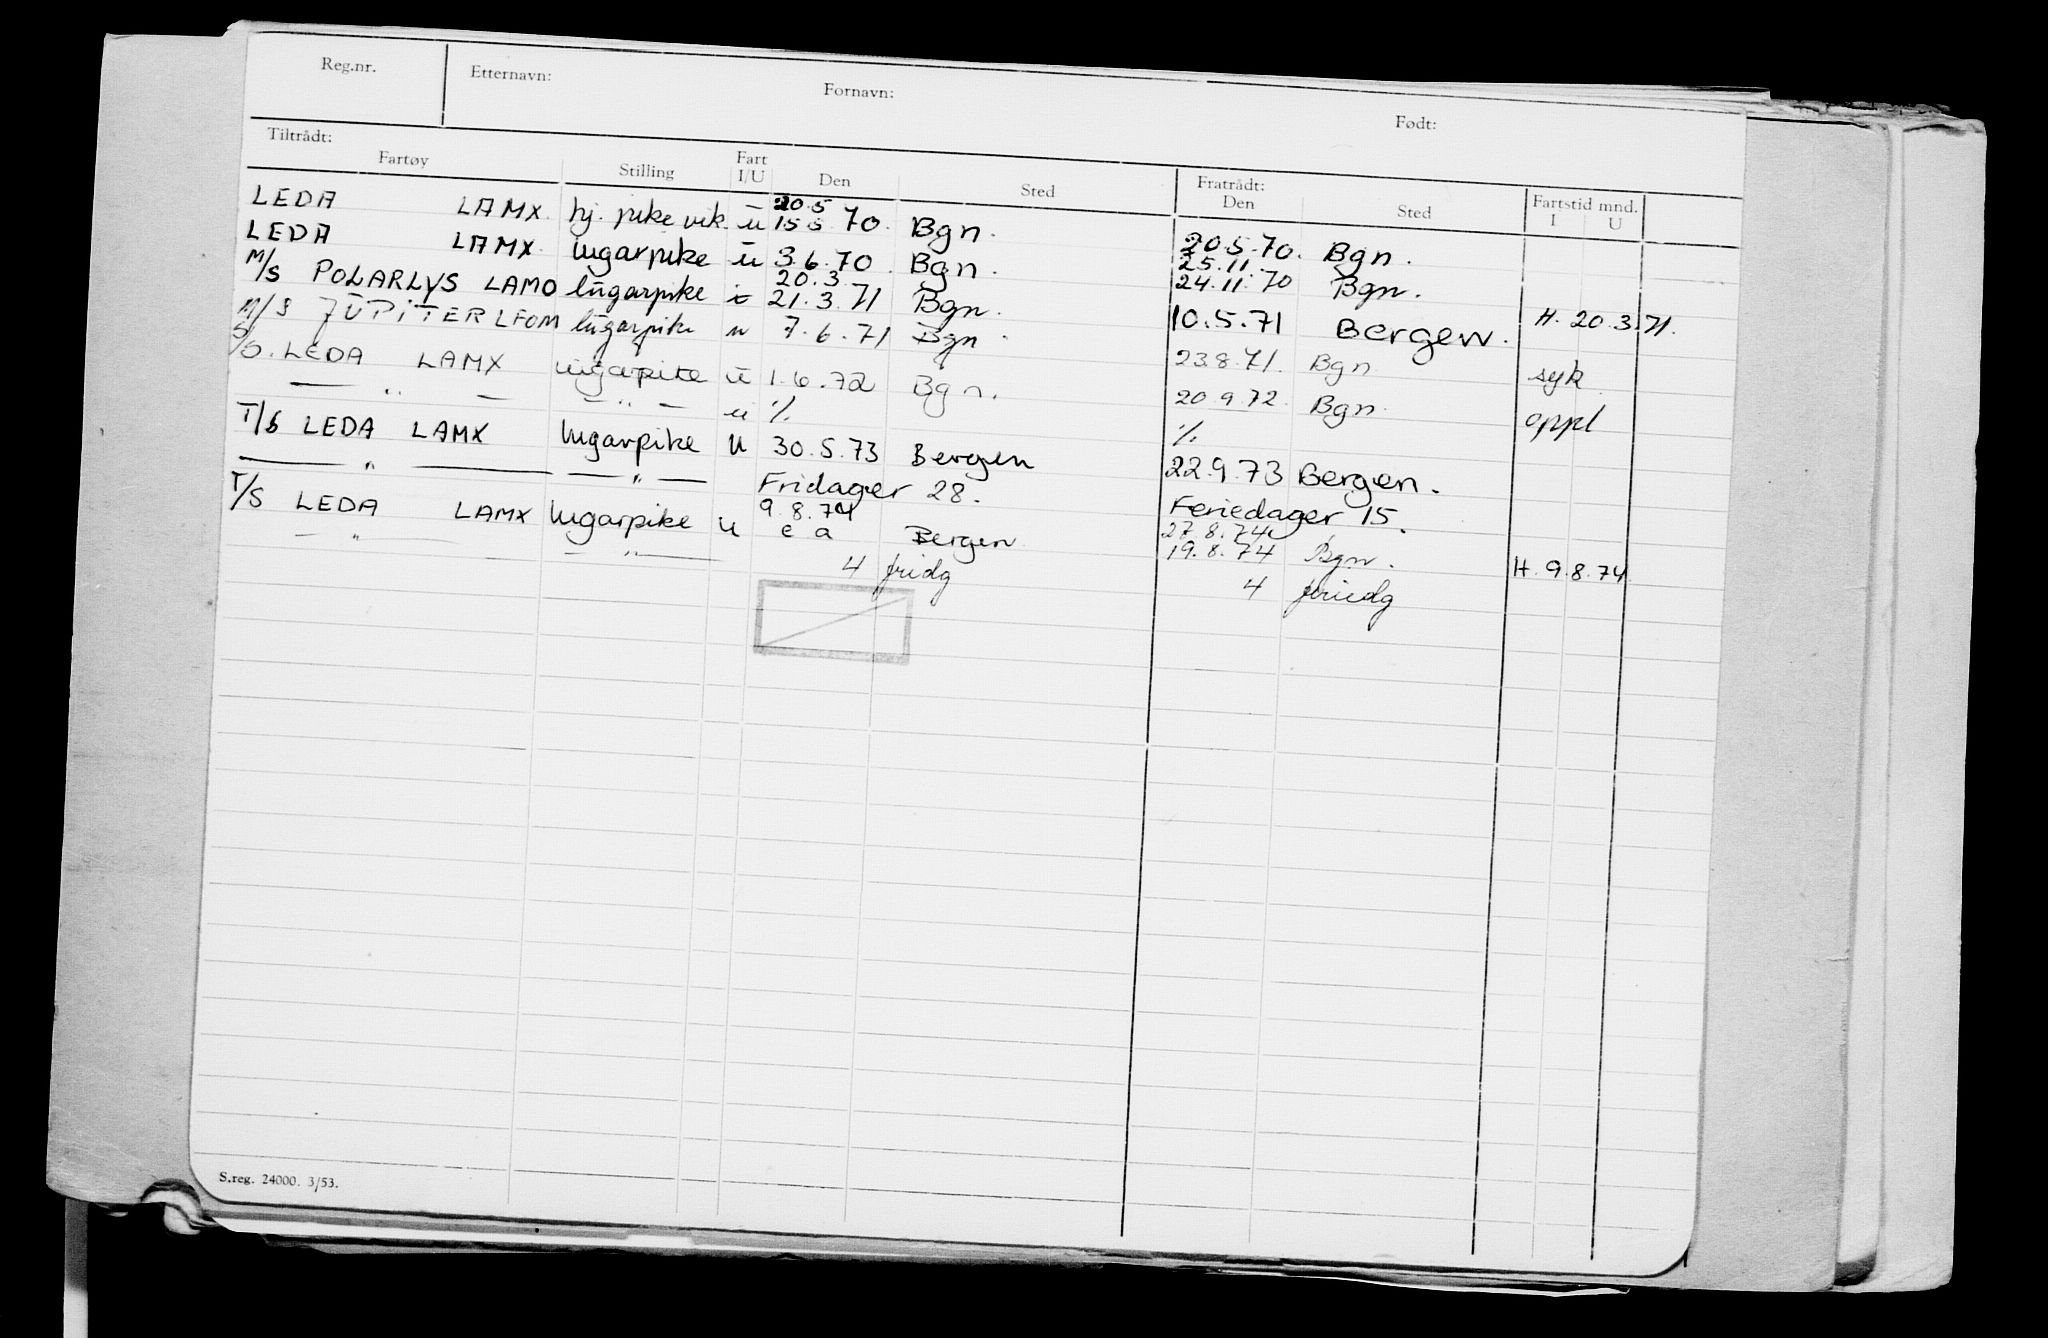 Reg.nr. Etternavn: Fornavn: Født:
Tiltrådt: Fratrådt:
Fartøy Stilling Fart I/U Den Sted Den Sted Fartstid mnd. I U
20.5
LEDA LAMX. hj. pike vik. ū 15 5 70. Bgn. 20.5.70. Bgn.
25.11.
LEDA LAMX. lugarpike ū 3.6.70. Bgn. 24.11.70 Bgn.
20.3
M/S POLARLYS LAMO lūgarpike i 21.3.71 Bgn. 10.5.71 Bergen. H. 20.3.71.
M/S JŪPITER LFOM lūgarpike u 7.6.71 Bgn. 23.8.71. Bgn syk
S/S. LEDA LAMX lugarpike ū 1.6.72 Bgn. 20.9.72. Bgn. oppl
— " — — " — u % %
T/S LEDA LAMX lugarpike U 30.5.73 Bergen 22.9.73 Bergen.
— " — — " — Fridager 28. Feriedager 15.
9.8.74 27.8.74
T/S LEDA LAMX lugarpike U e a Bergen 19.8.74 Bgn. H. 9.8.74
— " — — " — 4 fridg 4 feriedg
S.reg. 24000. 3/53.